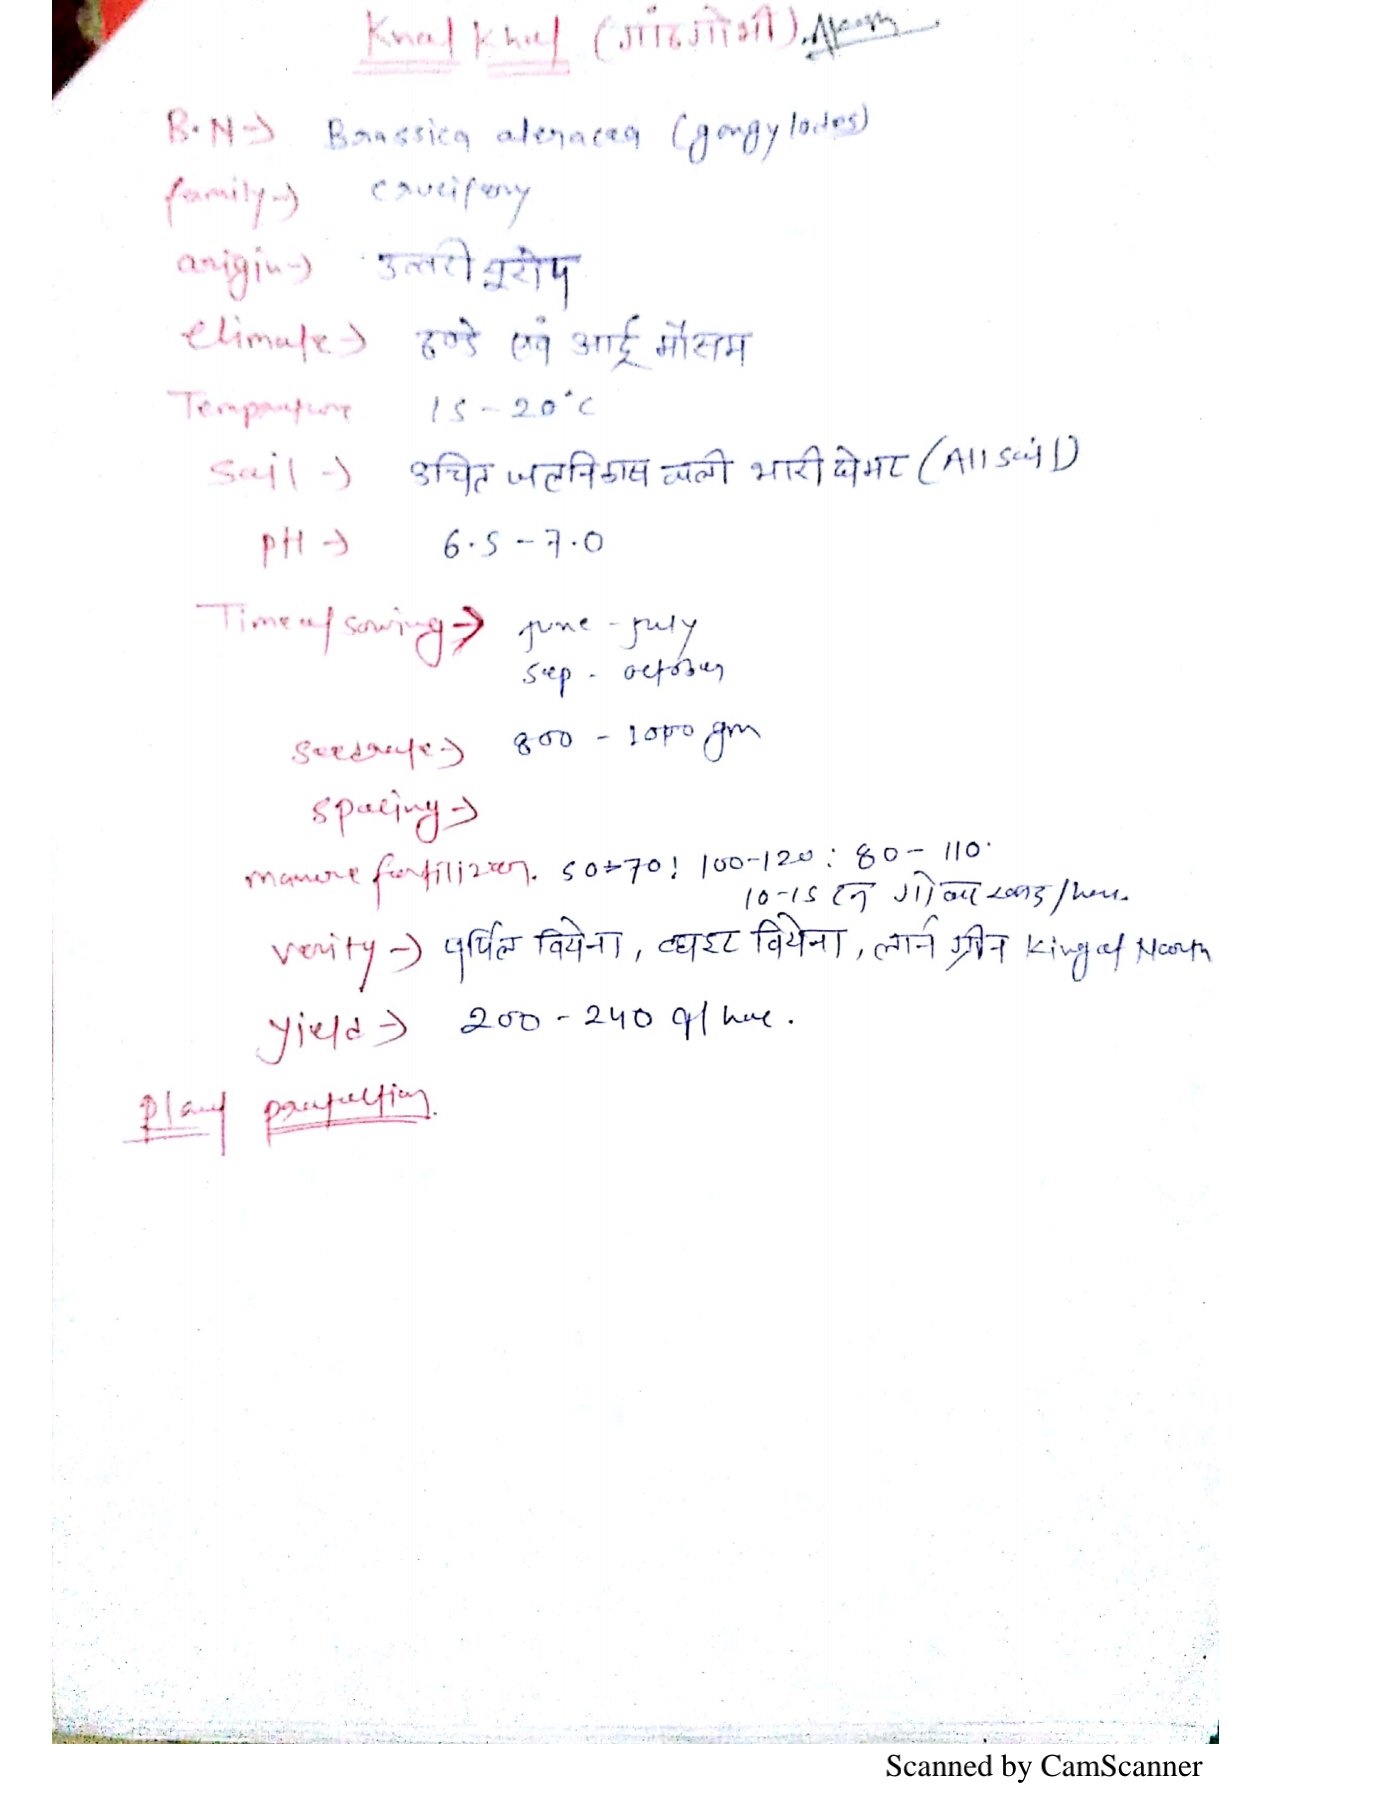 Knol Khol (गांठगोभी).
B.N→ Brassica oleracea (gongylodes)
family→ crucifery
origin→ उत्तरी यूरोप
climate→ ठण्डे एवं आर्द्र मौसम
Temperature 15-20°C
Soil → उचित जलनिकास वाली भारी दोमट (All soil)
pH → 6.5-7.0
Time of sowing→ June - July
Sep - october
Seedrate→ 800 - 1000 gm
Spacing→
manure fertilizer. 50-70: 100-120: 80-110.
10-15 टन गोबर खाद/hac.
verity→ पर्पिल वियेना, व्हाइट वियेना, लार्ज ग्रीन King of North
yield→ 200-240 q/hac.
Plant protection.
Scanned by CamScanner